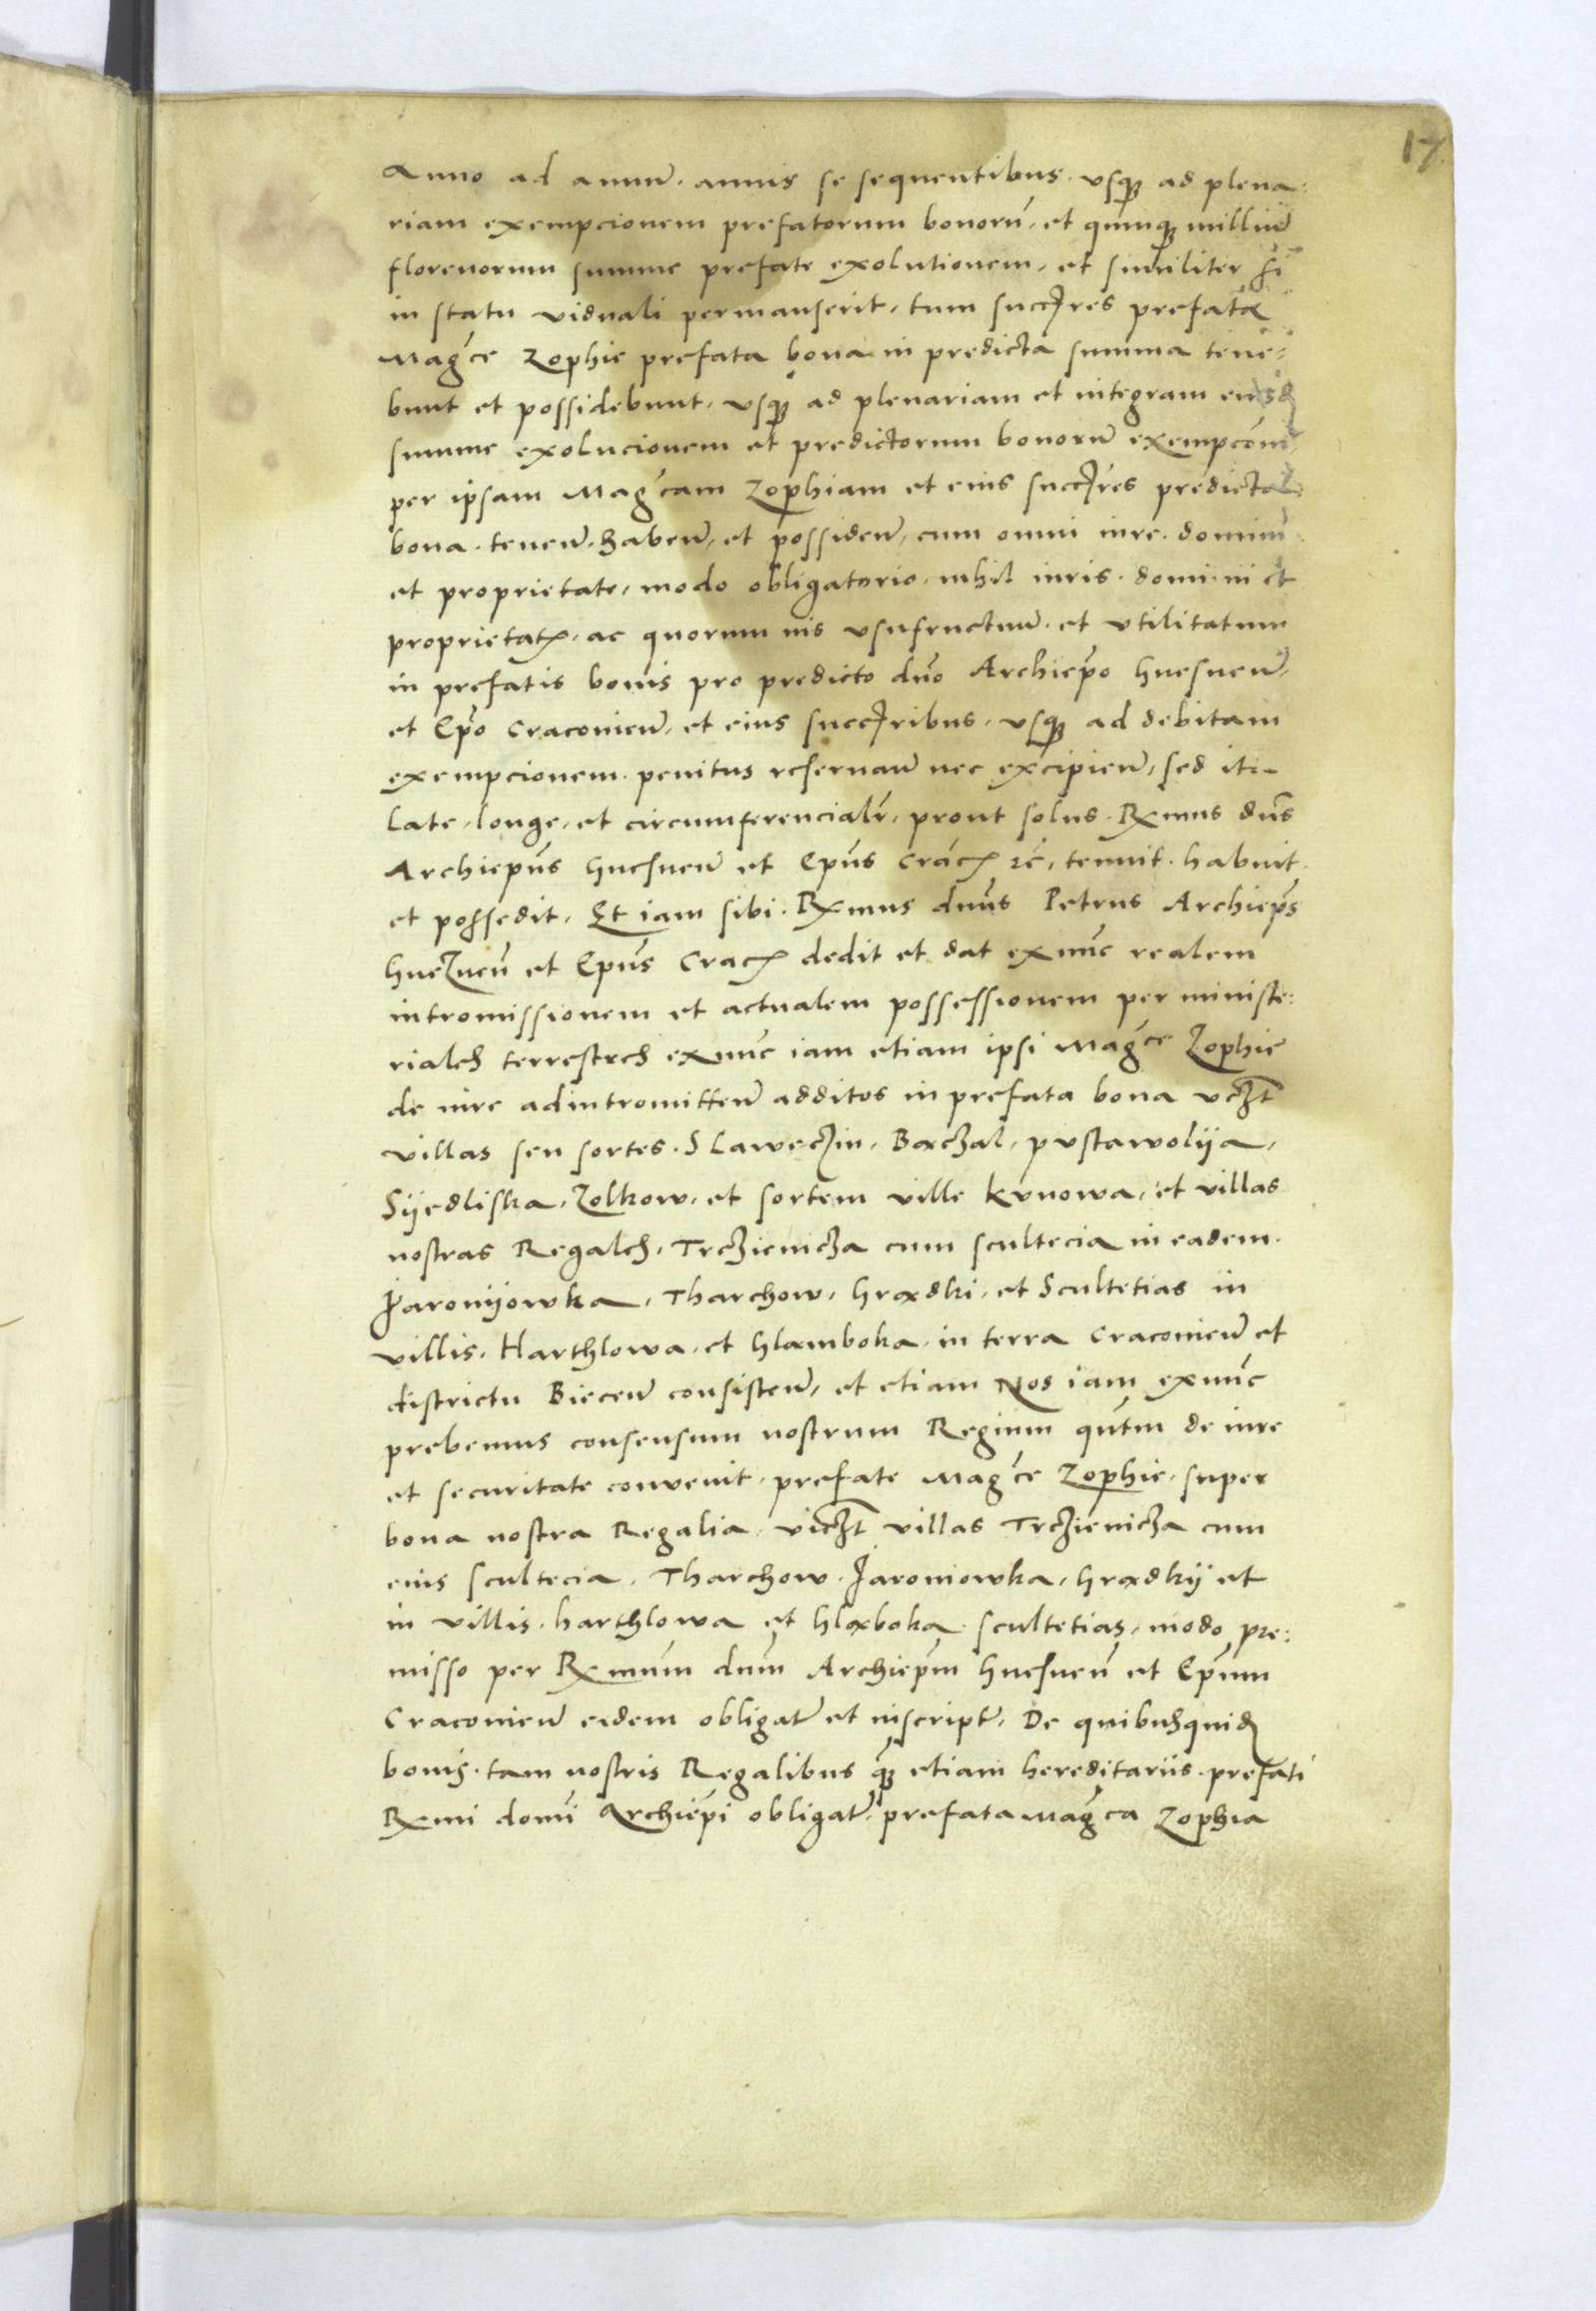 17
Anno ad annũ. annis se sequentibus. vsqꝫ ad plena:
riam exempcionem prefatorum bonorũ, et quinqꝫ milliũ
florenorum summe prefate exolutionem, et similiter si
in statu viduali permanserit, tum succr̃es prefatæ
Magc̃e Zophie prefata bona in predicta summa tene:
bunt et possidebunt, vsqꝫ ad plenariam et integram eiusd̃
summe exolucionem et predictorum bonorũ exempcõm̃
per ipsam Magc̃am Zophiam et eius succr̃es predicta
bona. teneñ. habeñ, et possideñ, cum omni iure. dominio
et proprietate, modo obligatorio, nihil iuris. dominii et
proprietatꝭ, ac quorumuis vsufructuũ. et vtilitatum
in prefatis bonis pro predicto dño Archiep̃o Gnesneñ,
et Ep̃o Cracouieñ, et eius succr̃ibus, vsqꝫ ad debitam
exempcionem. penitus reseruañ nec excipieñ, sed ita
late, longe, et circumferencialr̃, prout solus. Rx̃mus dñs
Archiep̃us Gnesneñ et Ep̃us Cracꝭ ꝛc̃, tenuit. habuit.
et possedit. Et iam sibi. Rx̃mus dñus Petrus Archiep̃s
Gnezneñ et Ep̃us Cracꝭ dedit et dat exnũc realem
intromissionem et actualem possessionem per ministe:
riales terrestres exnũc iam etiam ipsi Magc̃e Zophie
de iure adintromitteñ additos in prefata bona vczt̃
villas seu sortes. Slaweczin. Baczal, pvstawolÿa,
Sÿedliska, Zolkow, et sortem ville kvnowa, et villas
nostras Regales. Trczienicza cum scultecia in eadem.
Jaronÿowka, Tharchow, Grodki, et Scultetias in
villis. Harthlowa, et Glamboka. in terra Cracouieñ et
districtu Bieceñ consisteñ, et etiam Nos iam exnũc
prebemus consensum nostrum Regium qũtm de iure
et securitate conuenit. prefate Magc̃e Zophie, super
bona nostra Regalia, viczt̃ villas Trczienicza cum
eius scultecia. Tharchow. Jaroniowka, Grodkÿ et
in villis. harthlowa et Globoka scultetias, modo pre:
misso per Rx̃mũm dñm Archiep̃m Gnesneñ et Ep̃um
Cracouieñ eidem obligat̃ et inscript̃, De quibusquid̃
bonis. tam nostris Regalibus qꝫ̃ etiam hereditariis. prefati
Rx̃mi domĩ Archiep̃i obligat̃. prefata Magc̃a Zophia